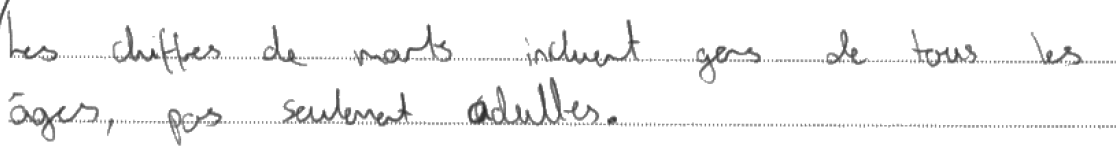 Les chiffres de morts incluent gens de tous les
âges, pas seulement adultes.